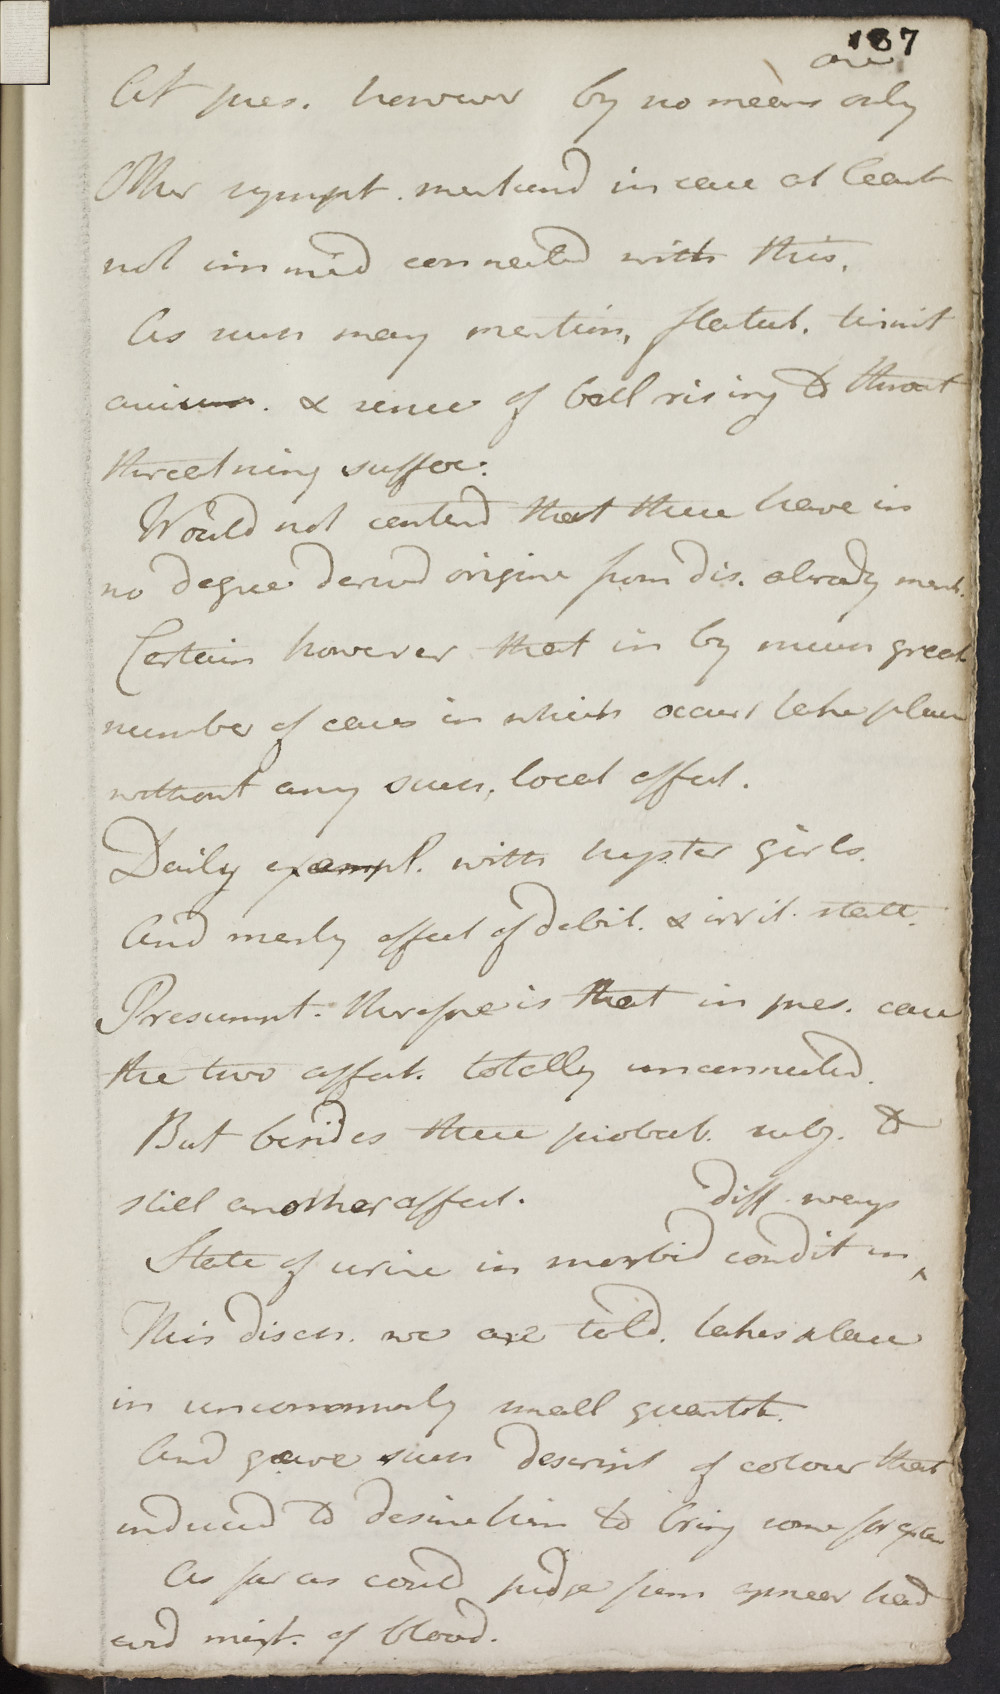 187
At pres. however by no means only one
Other sympt. ment.end in case at least
not immed connected with this.
As such may mention, flatul. tinnit
aurium. & sense of ball rising to throat
threatning suffoc.
Would not contend that these have in
no degree derived origine from dis. already ment.
Certain however that in by much great
number of cases in which occur, take place
without any such, local affect.
Daily exampl. with hyster girls.
And merly effect of debil. & irrit. state.
Presumpt. therefore is that in pres. case
the two affect. totally unconnected.
But besides these probab. subj. to
still another affect.
State of urine in morbid condit in diff ways
This disch. we are told. takes place
in uncommonly small quantit.
And gave such descript of colour that
induced to desire him to bring some for exam
As far as could judge from appear had
cons'd mixt. of blood.